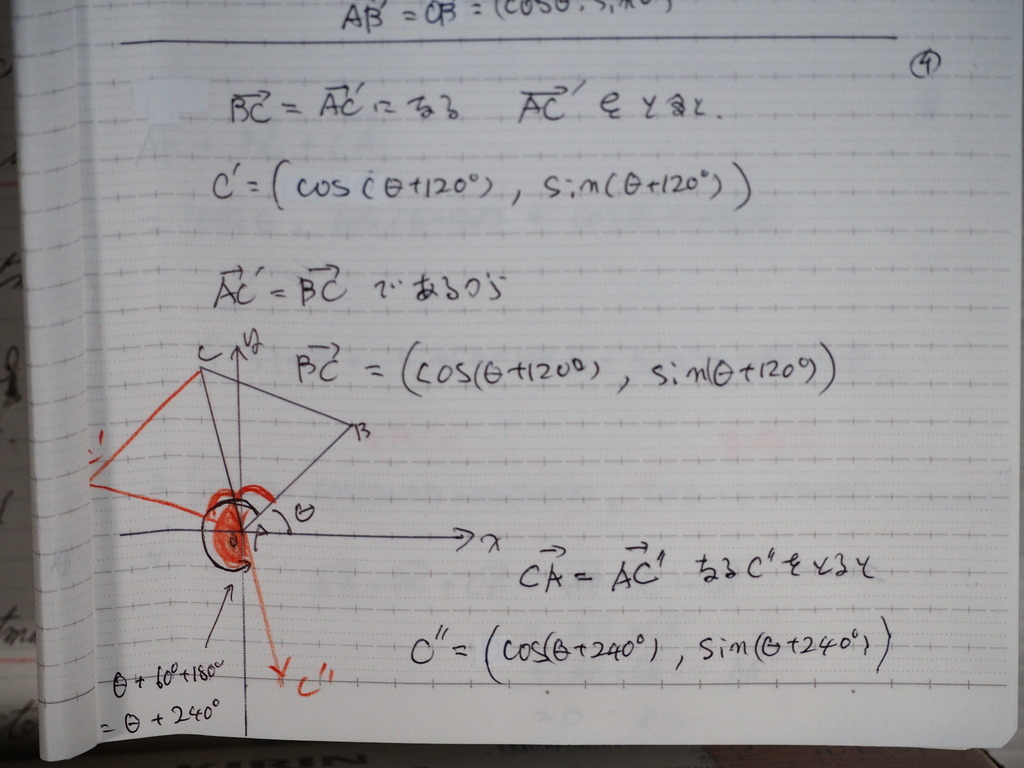 AB' = OB = (cosθ, sinθ)
④
BC = AC' になる AC' をとると.
C' = (cos(θ+120°), sin(θ+120°))
AC' = BC であるから
BC = (cos(θ+120°), sin(θ+120°))
C
y
B
θ
A
x
CA = AC" なるC"をとると
C" = (cos(θ+240°), sin(θ+240°))
θ+60°+180°
= θ+240°
C"
KIRIN